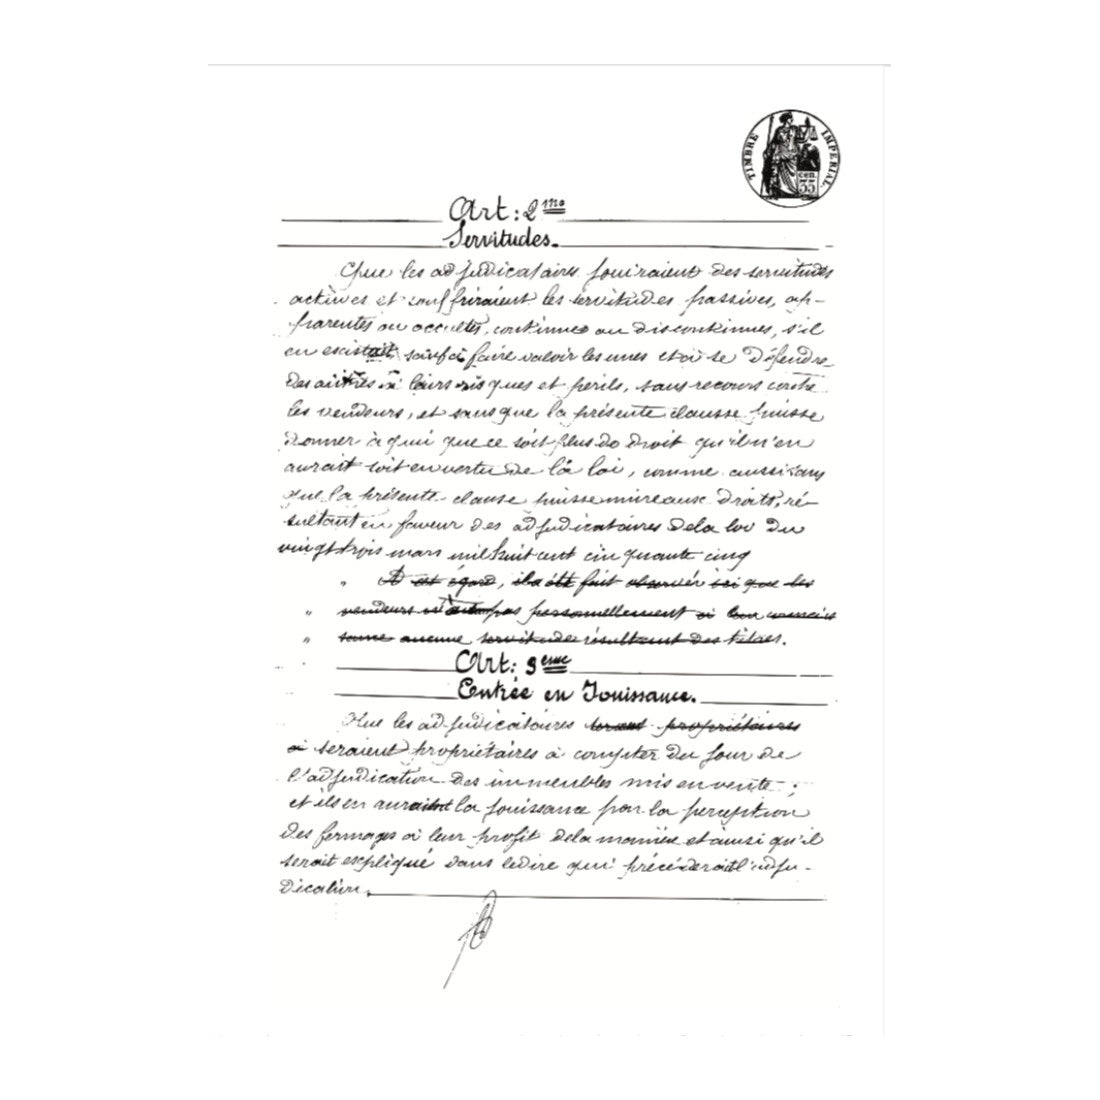 TIMBRE IMPERIAL
cen. 35
Art: 2me
Servitudes.
Que les adjudicataires jouiraient des servitudes
actives et souffriraient les servitudes passives, ap-
parentes ou occultes, continues ou discontinues, s'il
en existait sauf à faire valoir les unes et à se défendre
des autres à leurs risques et perils, sans recours contre
les vendeurs, et sans que la présente clause puisse
donner à qui que ce soit plus de droit qu'il n'en
aurait soit en vertu de la loi, comme aussi sans
que la présente clause puisse nuire aux droits, ré-
sultant en faveur des adjudicataires de la loi du
vingt trois mars mil huit cent cinquante cinq
" A cet égard, il a été fait observer ici que les
" vendeurs n'ont pas personnellement à leur connais
" sance aucune servitude résultant des titres.
Art: 3eme
Entrée en Jouissance.
Que les adjudicataires seront propriétaires
seraient propriétaires à compter du jour de
l'adjudication des immeubles mis en vente ;
et ils en auraient la jouissance par la perception
des fermages à leur profit de la manière et ainsi qu'il
serait expliqué dans le dire qui précéderait l'adju-
dication.